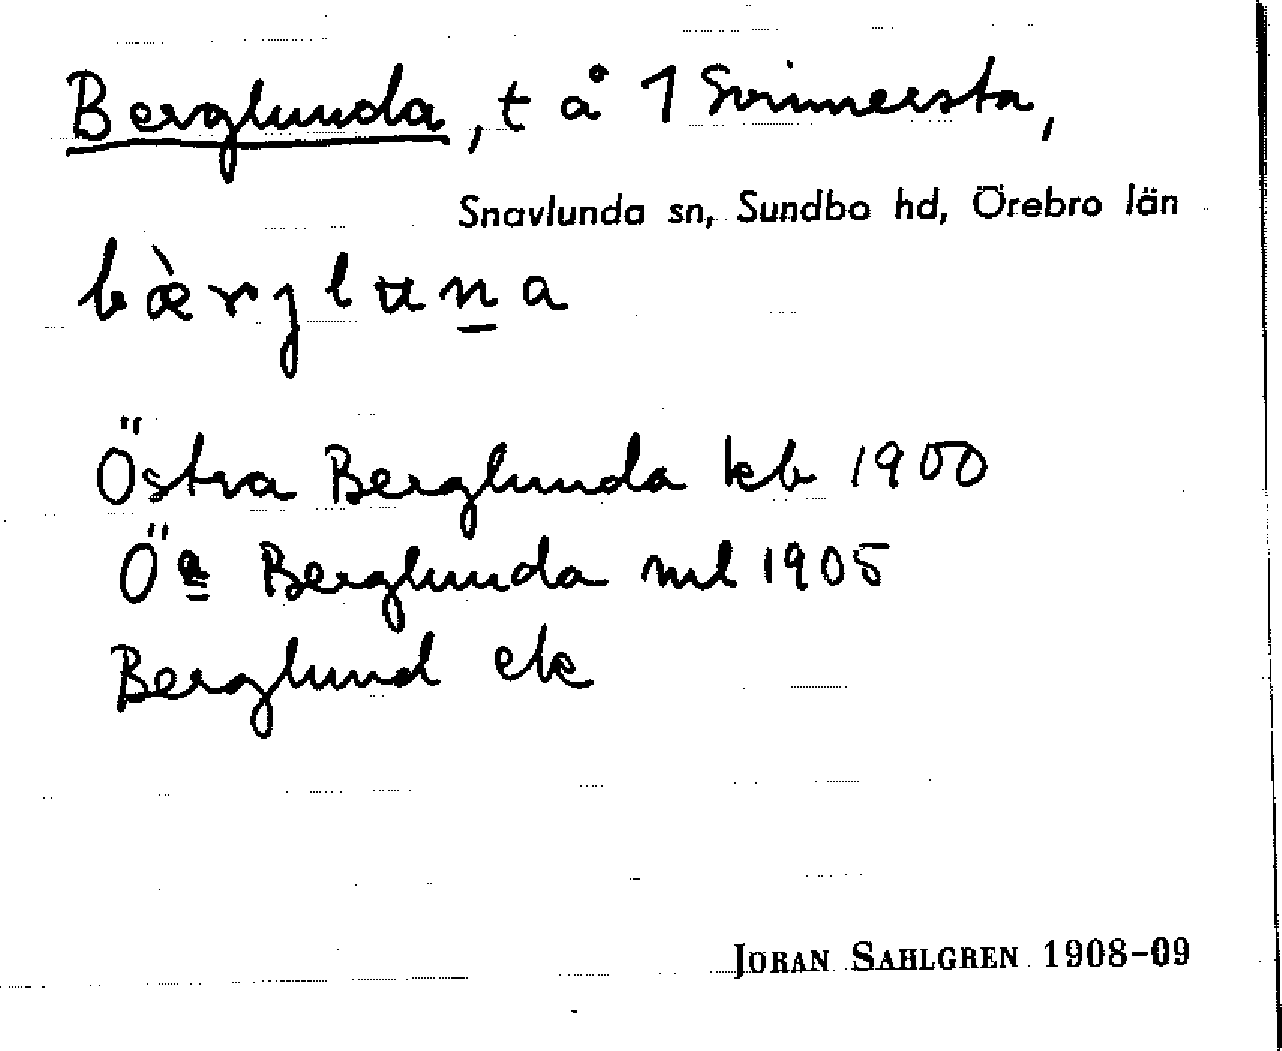 Berglunda, t å 1 Svinnersta,
Snavlunda sn, Sundbo hd, Örebro län
bæ̀rjluṉa
Östra Berglunda kb 1900
Öa Berglunda ml 1905
Berglund ek
JORAN SAHLGREN 1908-09